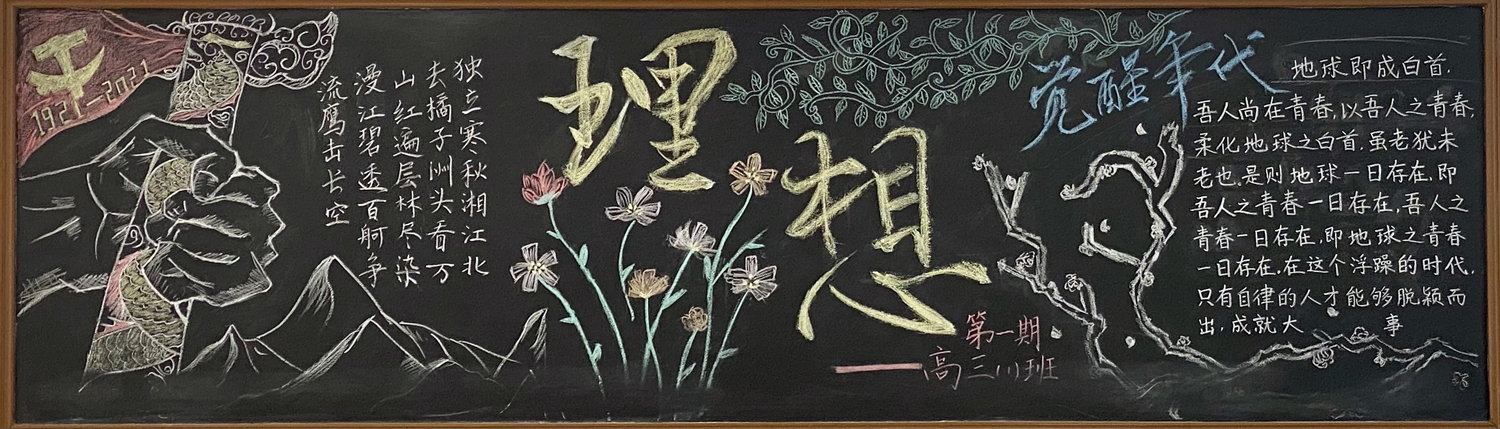 1921-2021
独立寒秋湘江北
去橘子洲头看万
山红遍层林尽染
漫江碧透百舸争
流鹰击长空
理想
第一期
——高三 班
觉醒年代
地球即成白首,
吾人尚在青春,以吾人之青春,
柔化地球之白首,虽老犹未
老也.是则地球一日存在,即
吾人之青春一日存在,吾人之
青春一日存在,即地球之青春
一日存在,在这个浮躁的时代,
只有自律的人才能够脱颖而
出,成就大 事